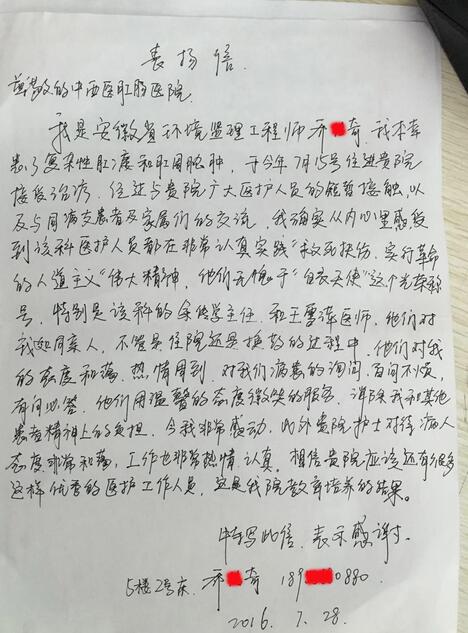 表扬信
尊敬的中西医肛肠医院.
我是安徽省环境监理工程师乔奇. 我不幸
患了复杂性肛瘘和肛周脓肿, 于今年7月15号住进贵院
接受治疗. 住进与贵院广大医护人员的短暂接触, 以
及与同病友患者及家属们的交流, 我确实从内心里感受
到该科医护人员都在非常认真实践"救死扶伤, 实行革命
的人道主义"伟大精神, 他们无愧于"白衣天使"这个光荣称
号. 特别是该科的余主任和王医师, 他们对
我如同亲人, 不管是住院还是换药的过程中, 他们对我
的态度和蔼. 热情周到. 对我们病患的询问, 百问不烦,
有问必答. 他们用温馨的态度微笑的服务. 消除我和其他
患者精神上的负担. 令我非常感动. 此外贵院护士对待病人
态度非常和蔼, 工作也非常热情、认真. 相信贵院应该还有很多
这样优秀的医护工作人员, 这是我院教育培养的结果。
特写此信. 表示感谢!
5楼2号床. 乔奇 189 0880.
2016. 7. 28.